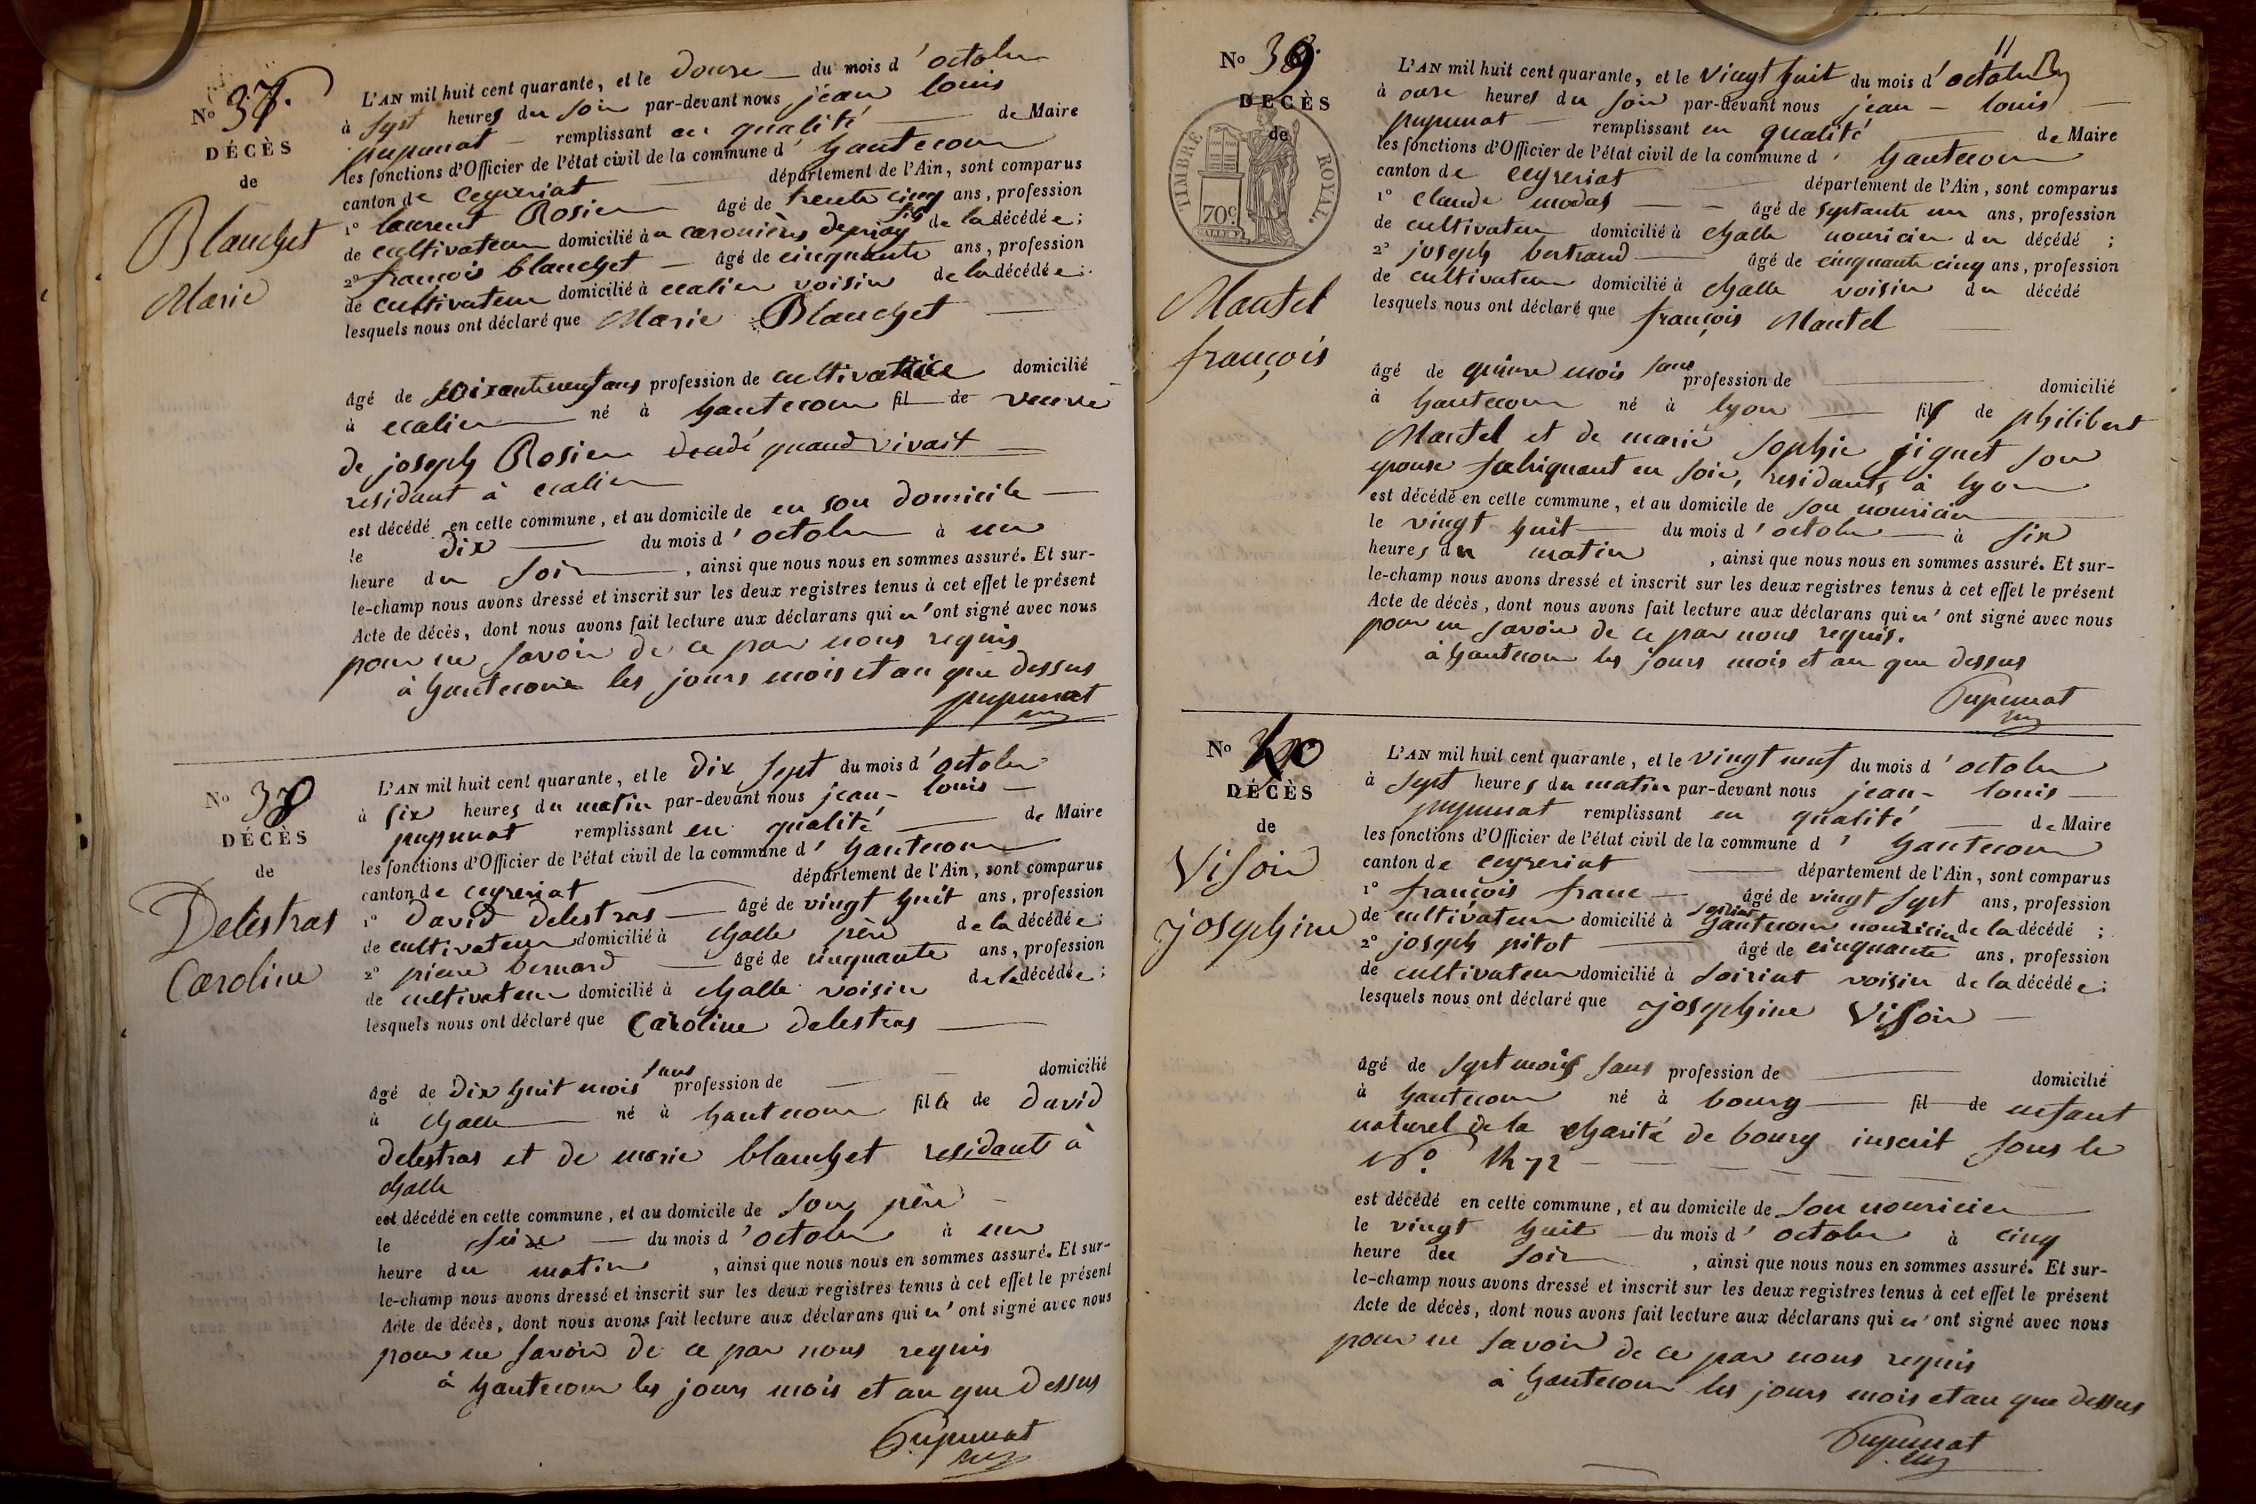 No 37.
DÉCÈS
de
Blanchet
Marie
L'AN mil huit cent quarante, et le douze du mois d'octobre
à sept heures du soir par-devant nous jean louis
pupunat remplissant en qualité de Maire
les fonctions d'Officier de l'état civil de la commune d'hautecour
canton de ceyzeriat département de l'Ain, sont comparus
1° laurent Rosier âgé de trente cinq ans, profession
de cultivateur domicilié à fils de la décédée;
2° françois blanchet âgé de cinquante ans, profession
de cultivateur domicilié à voisin de la décédée;
lesquels nous ont déclaré que Marie Blanchet
âgé de soixante neuf ans profession de cultivatrice domicilié
à né à hautecour fil de veuve
de joseph Rosier quand vivait
residant à
est décédé en cette commune, et au domicile de en son domicile
le dix du mois d'octobre à un
heure du soir, ainsi que nous nous en sommes assuré. Et sur-
le-champ nous avons dressé et inscrit sur les deux registres tenus à cet effet le présent
Acte de décès, dont nous avons fait lecture aux déclarans qui n'ont signé avec nous
pour ne savoir de ce par nous requis
à hautecour les jours mois et an que dessus
pupunat
No 38
DÉCÈS
de
Delestras
Caroline
L'AN mil huit cent quarante, et le dix sept du mois d'octobre
à six heures du matin par-devant nous jean-louis
pupunat remplissant en qualité de Maire
les fonctions d'Officier de l'état civil de la commune d'hautecour
canton de ceyzeriat département de l'Ain, sont comparus
1° david delestras âgé de vingt huit ans, profession
de cultivateur domicilié à challe père de la décédée;
2° pierre bernard âgé de cinquante ans, profession
de cultivateur domicilié à challe voisin de la décédée;
lesquels nous ont déclaré que Caroline delestras
âgé de dix huit mois sans profession de domicilié
à challe né à hautecour fille de david
delestras et de marie blanchet residants à
challe
est décédé en cette commune, et au domicile de son père
le seize du mois d'octobre à un
heure du matin, ainsi que nous nous en sommes assuré. Et sur-
le-champ nous avons dressé et inscrit sur les deux registres tenus à cet effet le présent
Acte de décès, dont nous avons fait lecture aux déclarans qui n'ont signé avec nous
pour ne savoir de ce par nous requis
à hautecour les jours mois et an que dessus
Pupunat
No 39.
DÉCÈS
de
TIMBRE ROYAL
70c
Mantel
françois
L'AN mil huit cent quarante, et le vingt huit du mois d'octobre
à onze heures du soir par-devant nous jean-louis
pupunat remplissant en qualité de Maire
les fonctions d'Officier de l'état civil de la commune d'hautecour
canton de ceyzeriat département de l'Ain, sont comparus
1° claude modas âgé de septante un ans, profession
de cultivateur domicilié à challe nouricier du décédé;
2° joseph bertrand âgé de cinquante cinq ans, profession
de cultivateur domicilié à challe voisin du décédé
lesquels nous ont déclaré que françois Mantel
âgé de quinze mois sans profession de domicilié
à hautecour né à lyon fils de philibert
Mantel et de marie Sophie jiguet son
epouse fabriquant en soie, residants à lyon
est décédé en cette commune, et au domicile de son nouricier
le vingt huit du mois d'octobre à six
heures du matin, ainsi que nous nous en sommes assuré. Et sur-
le-champ nous avons dressé et inscrit sur les deux registres tenus à cet effet le présent
Acte de décès, dont nous avons fait lecture aux déclarans qui n'ont signé avec nous
pour ne savoir de ce par nous requis.
à hautecour les jours mois et an que dessus
Pupunat
No 40
DÉCÈS
de
Visoin
josephine
L'AN mil huit cent quarante, et le vingt neuf du mois d'octobre
à sept heures du matin par-devant nous jean-louis
pupunat remplissant en qualité de Maire
les fonctions d'Officier de l'état civil de la commune d'hautecour
canton de ceyzeriat département de l'Ain, sont comparus
1° françois franc âgé de vingt sept ans, profession
de cultivateur domicilié à soiriat hautecour nouricier de la décédé;
2° joseph pitot âgé de cinquante ans, profession
de cultivateur domicilié à soiriat voisin de la décédée;
lesquels nous ont déclaré que josephine Visoin
âgé de sept mois sans profession de domicilié
à hautecour né à bourg fil de enfant
naturel de la charité de bourg inscrit sous le
No.
est décédé en cette commune, et au domicile de son nouricier
le vingt huit du mois d'octobre à cinq
heure du soir, ainsi que nous nous en sommes assuré. Et sur-
le-champ nous avons dressé et inscrit sur les deux registres tenus à cet effet le présent
Acte de décès, dont nous avons fait lecture aux déclarans qui n'ont signé avec nous
pour ne savoir de ce par nous requis
à hautecour les jours mois et an que dessus
Pupunat